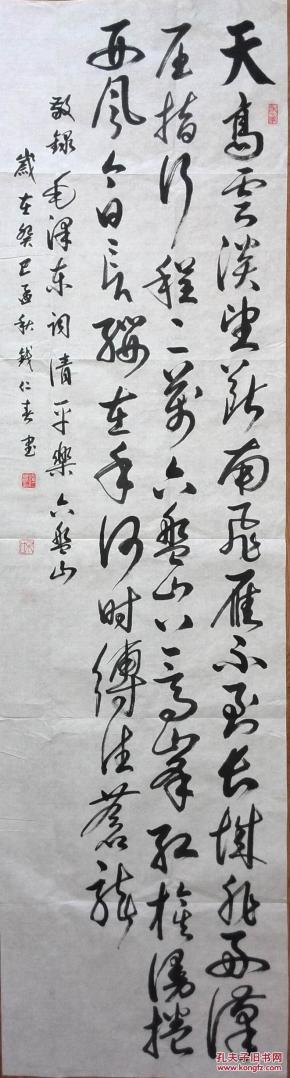 天高雲淡望斷南飛雁不到長城非好漢
屈指行程二萬六盤山上高峰紅旗漫捲
西風今日長纓在手何時縛住蒼龍
敬録毛澤东词清平樂六盤山
歲在癸巳孟秋钱仁春書
孔夫子旧书网